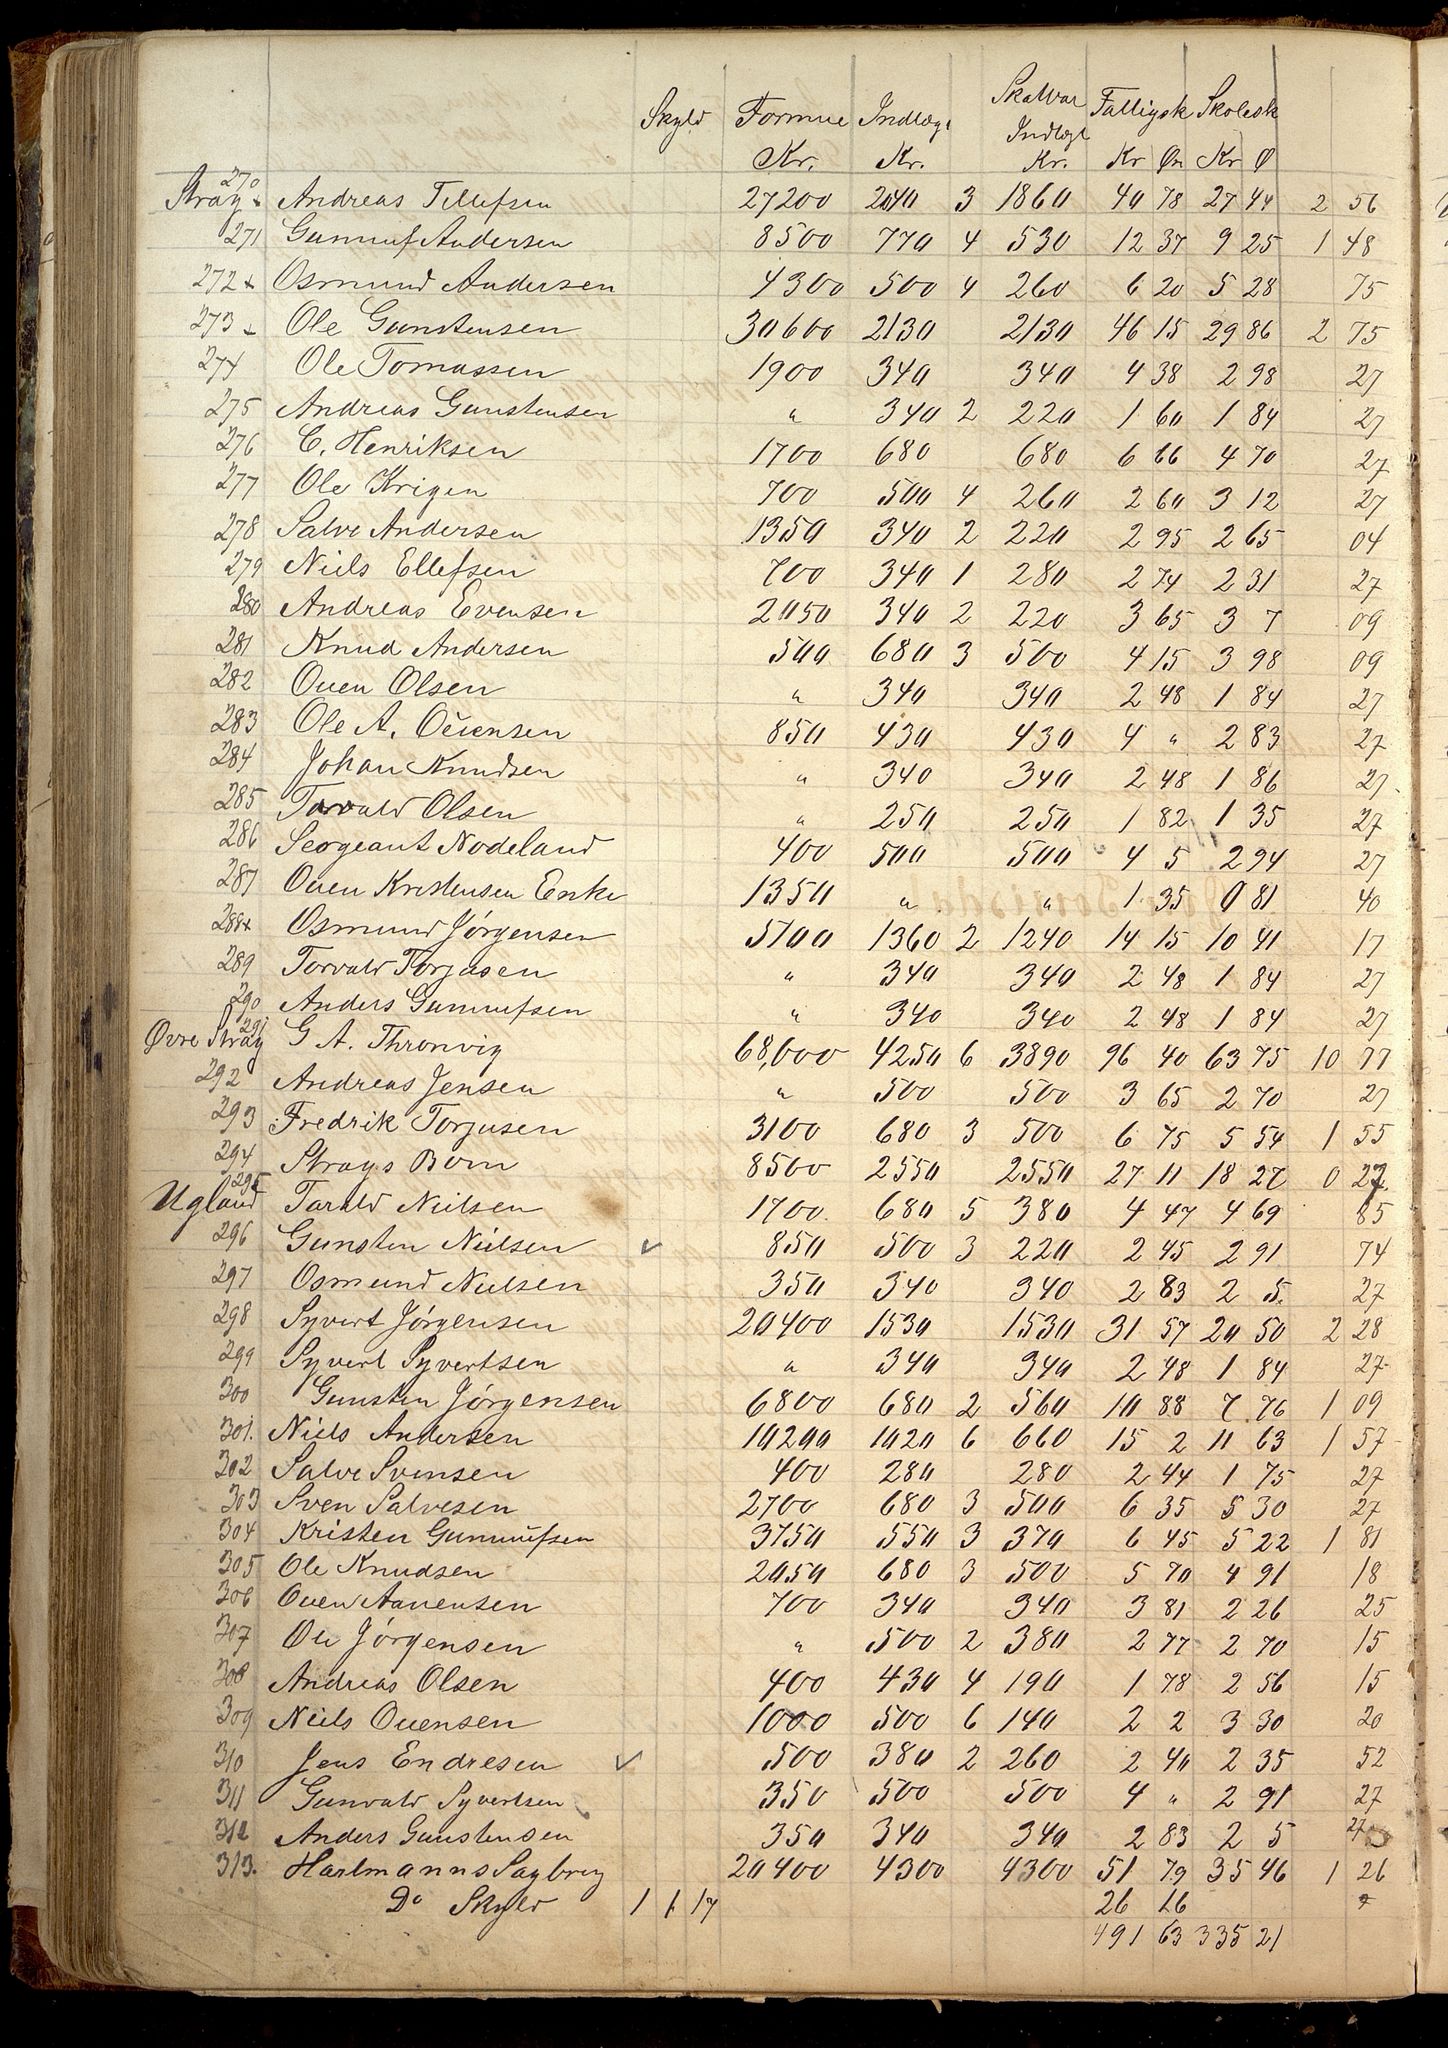 Skyld Formue Indlægt Skatbar Indlægt Fattigsk Skolesk
Kr. Kr. Kr. Kr Ør Kr Ø
Stray 270 Andreas Tellefsen 27200 2040 3 1860 40 78 27 44 2 56
271 Gunnuf Andersen 8500 770 4 530 12 37 9 25 1 48
272 + Osmund Andersen 4300 500 4 260 6 20 5 28 75
273 + Ole Gunstensen 30600 2130 2130 46 15 29 86 2 75
274 Ole Tomassen 1900 340 340 4 38 2 98 27
275 Andreas Gunstensen " 340 2 220 1 60 1 84 27
276 C. Henriksen 1700 680 680 6 66 4 70 27
277 Ole Krigen 700 500 4 260 2 60 3 12 27
278 Salve Andersen 1350 340 2 220 2 95 2 65 04
279 Niels Ellefsen 700 340 1 280 2 74 2 31 27
280 Andreas Evensen 2050 340 2 220 3 65 3 7 09
281 Knud Andersen 500 680 3 500 4 15 3 98 09
282 Ouen Olsen " 340 340 2 48 1 84 27
283 Ole A. Ouensen 850 430 430 4 " 2 83 27
284 Johan Knudsen " 340 340 2 48 1 86 27
285 Torvald Olsen " 250 250 1 82 1 35 27
286 Sergeant Nodeland 400 500 500 4 5 2 94 27
287 Ouen Kristensen Enke 1350 " " 1 35 0 81 40
288+ Osmund Jörgensen 5700 1360 2 1240 14 15 10 41 17
289 Torvald Torjusen " 340 340 2 48 1 84 27
290 Anders Gunnufsen " 340 340 2 48 1 84 27
Øvre Stray 291 G A. Thronvig 68,000 4250 6 3890 96 40 63 75 10 77
292 Andreas Jensen " 500 500 3 65 2 70 27
293 Fredrik Torjusen 3100 680 3 500 6 75 5 54 1 55
294 Strays Bom 8500 2550 2550 27 11 18 27 0 27
Ugland 295 Tarald Nielsen 1700 680 5 380 4 47 4 69 85
296 Gunsten Nielsen ✓ 850 500 3 220 2 45 2 91 74
297 Osmund Nielsen 350 340 340 2 83 2 5 27
298 Syvert Jörgensen 20400 1530 1530 31 57 20 50 2 28
299 Syvert Syvertsen " 340 340 2 48 1 84 27
300 Gunsten Jörgensen 6800 680 2 560 10 88 7 76 1 09
301. Niels Andersen 10200 1020 6 660 15 2 11 63 1 57
302 Salve Svensen 400 280 280 2 44 1 75 27
303 Sven Salvesen 2700 680 3 500 6 35 5 30 27
304 Kristen Gunnufsen 3750 550 3 370 6 45 5 22 1 81
305 Ole Knudsen 2050 680 3 500 5 70 4 91 18
306 Ouen Aanensen 700 340 340 3 81 2 26 25
307 Ole Jörgensen " 500 2 380 2 77 2 70 15
308 Andreas Olsen 400 430 4 190 1 78 2 56 15
309 Niels Ouensen 1000 500 6 140 2 2 3 30 20
310 Jens Endresen ✓ 500 380 2 260 2 40 2 35 52
311 Gunvald Syvertsen 350 500 500 4 " 2 91 27
312 Anders Gunstensen 350 340 340 2 83 2 5 27
313. Hartmanns Sagbrug 20400 4300 4300 51 79 35 46 1 26
Do Skyld 1 1 17 26 16
491 63 335 21